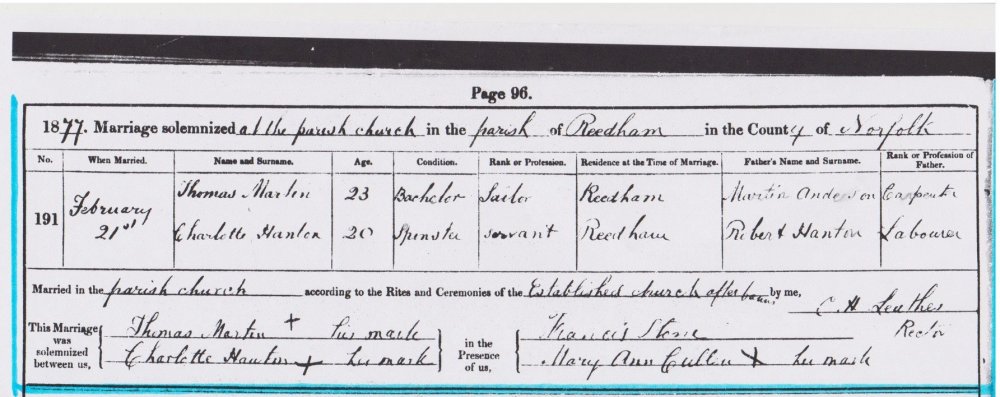 Page 96.
1877. Marriage solemnized at the parish church in the parish of Reedham in the County of Norfolk
No. When Married. Name and Surname. Age. Condition. Rank or Profession. Residence at the Time of Marriage. Father's Name and Surname. Rank or Profession of Father.
191 February 21st Thomas Martin 23 Bachelor Sailor Reedham Martin Anderson Carpenter
Charlotte Hanton 20 Spinster servant Reedham Robert Hanton Labourer
Married in the parish church according to the Rites and Ceremonies of the Established church after banns by me,
C H Leathes
Rector
This Marriage was solemnized between us, Thomas Martin + his mark in the Presence of us, Francis Stone
Charlotte Hanton + her mark Mary Ann Cullen X her mark